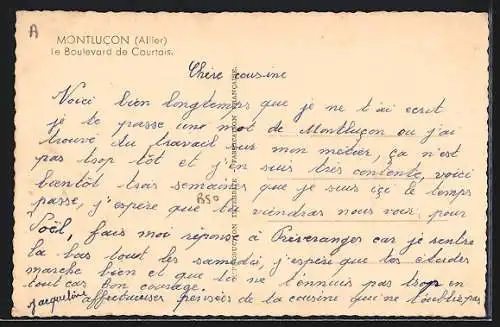 A
MONTLUÇON (Allier)
Le Boulevard de Courtais.
Chère cousine
Voici bien longtemps que je ne t'ai ecrit
je te passe une mot de Montluçon ou j'ai
trouvé du travail dans mon métier, ça n'est
pas trop tôt et j'en suis très contente, voici
bientôt trois semaines que je suis içi le temps
passe, j'espère que tu viendras nous voir, pour
Noël, fais moi réponse à Préveranges car je rentre
la bas tout les samedis, j'espère que tes études
marche bien et que tu ne t'ennuis pas trop en
tout cas bon courage.
affectueuses pensées de la cousine qui ne t'oublie pas
Jacqueline
B50
REPRODUCTION INTERDITE - FABRICATION FRANÇAISE